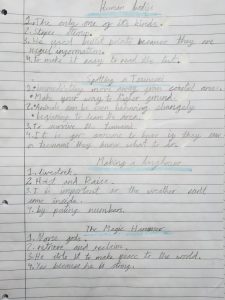 Human bodys
1. The only one of its kinds.
2. Stripes
3. We used bullet points because they are
information.
4. to make it easy to read the text.
Spotting a Tsunami
1. • immediately move away your coastal area.
• Make your way to higher ground.
2. • Animals can be seen behaving strangely
• beginning to leave the area.
3. To survive the tsunami.
4. It is for anyone to know if they see
a tsunami they know what to do.
Making a
1. livestock.
2. Hail and Rain.
3. It is important so the weather
come inside.
4. by putting numbers.
The Magic Hammer
1. Norse gods.
2. retrieve and reclaim.
3. He stole it to make peace to the world.
4. Yes because he is strong.